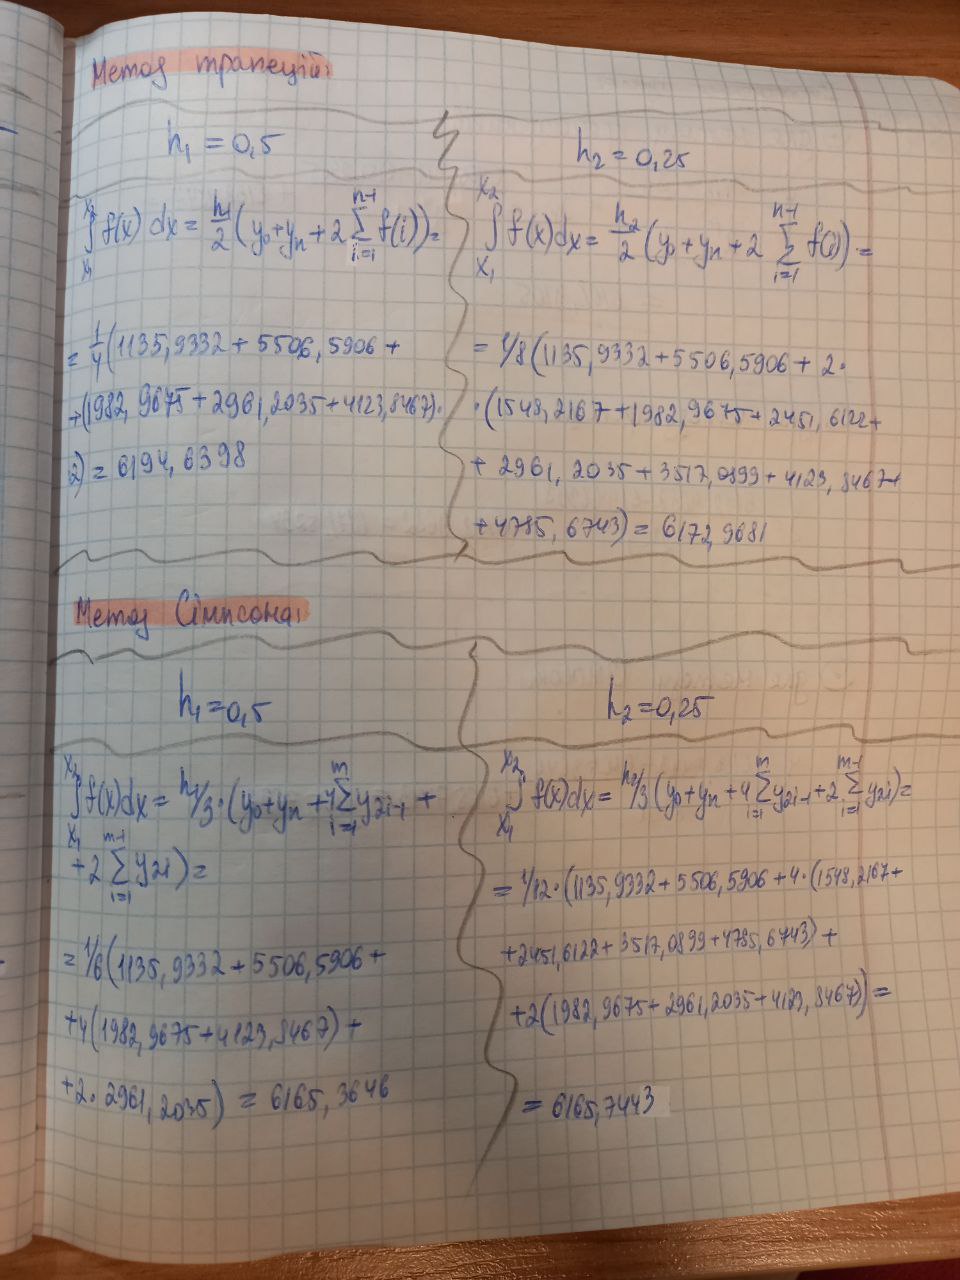 Метод трапецій:
h₁ = 0,5
∫ₓ₁ˣ² f(x) dx = h₁/2 (y₀ + yₙ + 2 ∑ᵢ₌₁ⁿ⁻¹ f(i)) =
= 1/4 (1135,9332 + 5506,5906 +
+ (1982,9675 + 2961,2035 + 4123,8467) ·
2) = 6194,6398
h₂ = 0,25
∫ₓ₁ˣ² f(x) dx = h₂/2 (y₀ + yₙ + 2 ∑ᵢ₌₁ⁿ⁻¹ f(i)) =
= 1/8 (1135,9332 + 5506,5906 + 2 ·
· (1548,2167 + 1982,9675 + 2451,6122 +
+ 2961,2035 + 3517,0899 + 4123,8467 +
+ 4785,6743) = 6172,9681
Метод Сімпсона:
h₁ = 0,5
∫ₓ₁ˣ² f(x) dx = h₁/3 · (y₀ + yₙ + 4 ∑ᵢ₌₁ᵐ y₂ᵢ₋₁ +
+ 2 ∑ᵢ₌₁ᵐ⁻¹ y₂ᵢ) =
= 1/6 (1135,9332 + 5506,5906 +
+ 4 (1982,9675 + 4123,8467) +
+ 2 · 2961,2035) = 6165,3646
h₂ = 0,25
∫ₓ₁ˣ² f(x) dx = h₂/3 (y₀ + yₙ + 4 ∑ᵢ₌₁ᵐ y₂ᵢ₋₁ + 2 ∑ᵢ₌₁ᵐ⁻¹ y₂ᵢ) =
= 1/12 · (1135,9332 + 5506,5906 + 4 · (1548,2167 +
+ 2451,6122 + 3517,0899 + 4785,6743) +
+ 2 (1982,9675 + 2961,2035 + 4123,8467)) =
= 6165,7443